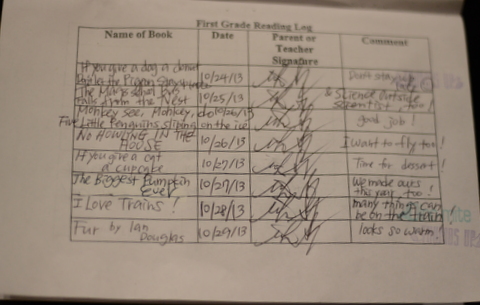 First Grade Reading Log
Name of Book Date Parent or Teacher Signature Comment
If you give a dog a donut
10/24/13 Don't stay up late
The Magic School Bus
10/25/13 & science outside
from the Nest
Monkey see, Monkey, do 10/26/13
Five Little Penguins slipping on the ice
good job!
NO HOWLING IN THE
HOUSE
10/26/13 I want to fly too!
If you give a cat
a cupcake
10/27/13 Time for dessert!
The Biggest Pumpkin
ever
10/27/13 We made ours
this year, too!
I Love Trains! 10/28/13 many things can
be on the train!
Fur by Ian
Douglas
10/29/13 looks so warm!